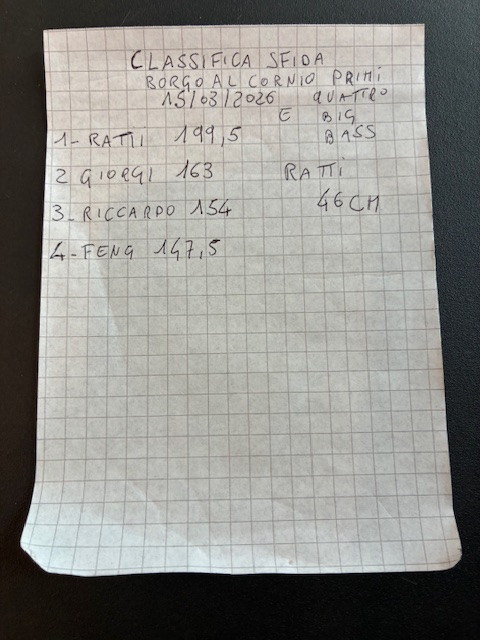 CLASSIFICA SFIDA
BORGO AL CORNIO PRIMI
15/03/2026 QUATTRO
E BIG
BASS
1- RATTI 199,5
2 GIORGI 163
RATTI
3- RICCARDO 154
46 CM
4- FENG 147,5